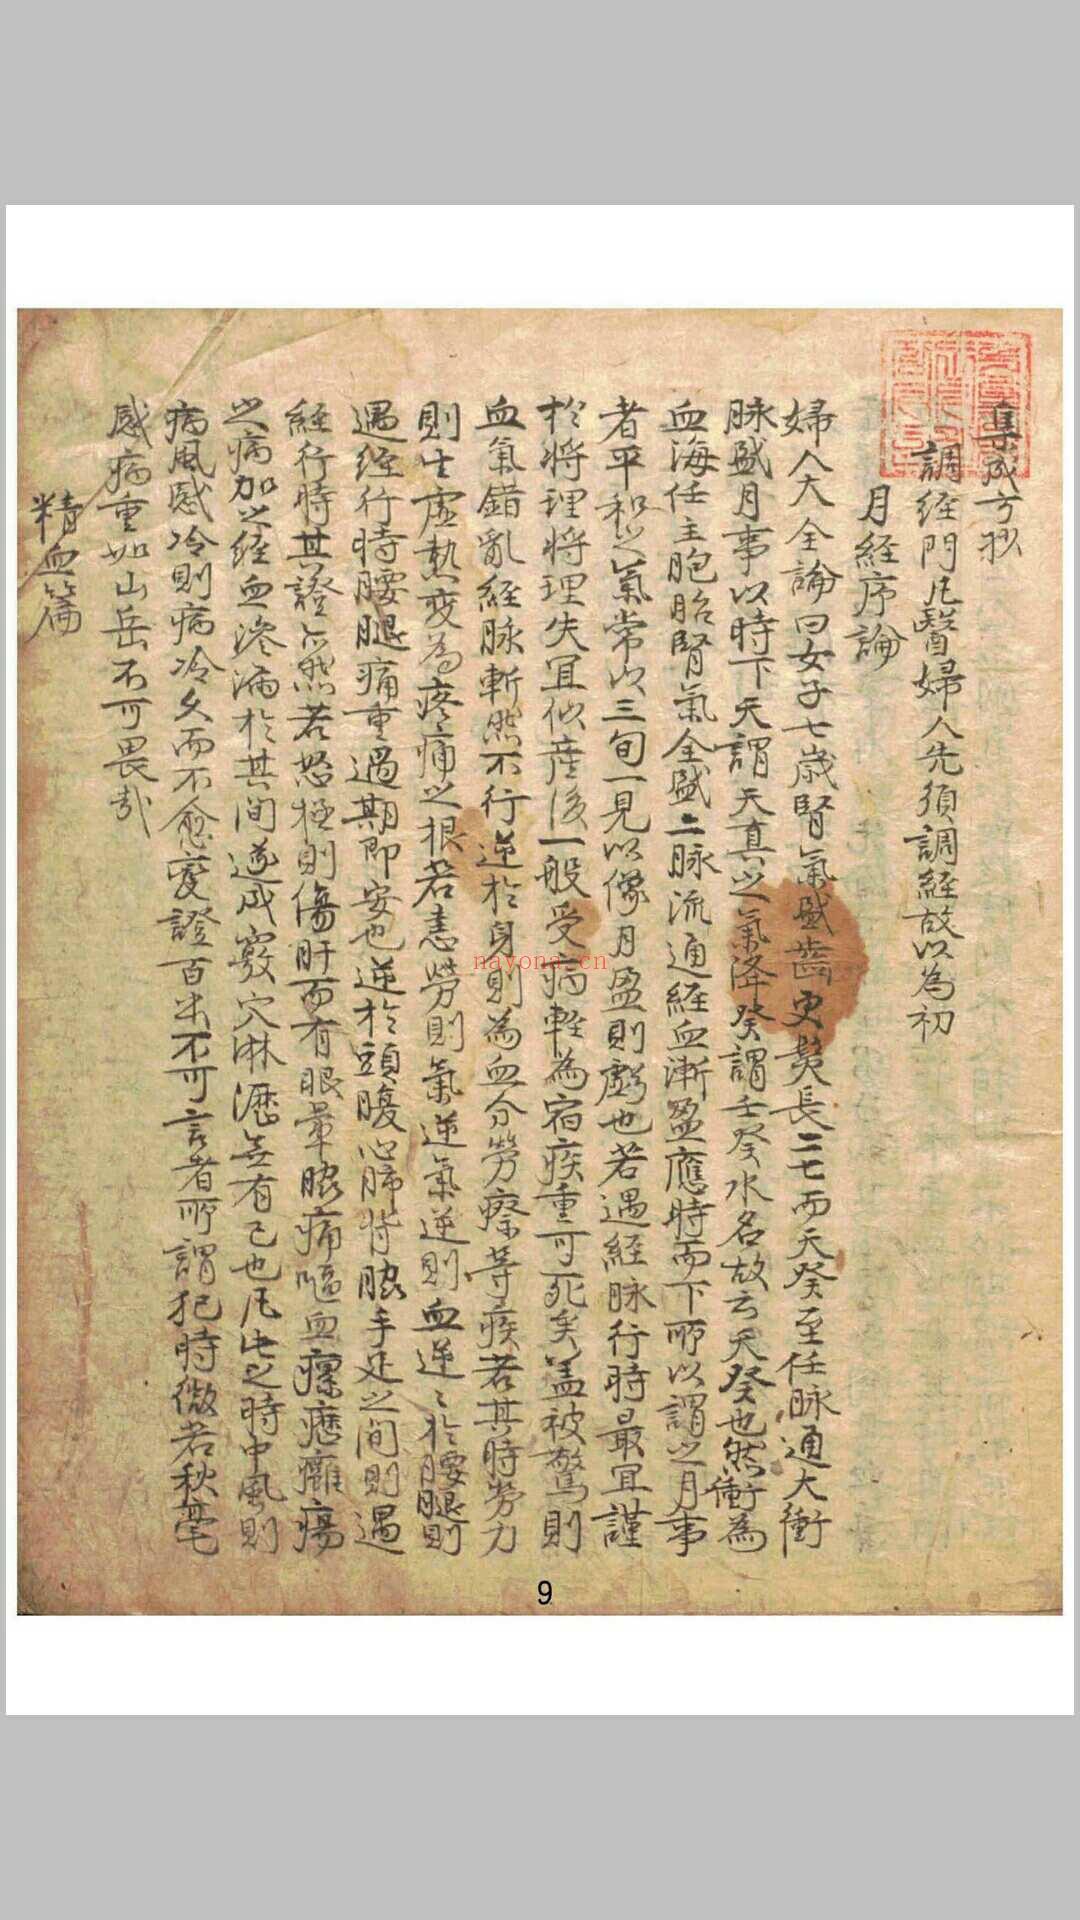 集成方抄
調経門凡醫婦人先須調経故以為初
月経序論
婦人大全論曰女子七歳腎氣盛齒更髮長二七而天癸至任脉通大衝
脉盛月事以時下天謂天真之氣降癸謂壬癸水名故云天癸也然衝為
血海任主胞胎腎氣全盛二脉流通経血漸盈應時而下所以謂之月事
者平和之氣常以三旬一見以像月盈則虧也若遇経脉行時最宜謹
於将理将理失宜似産後一般受病輕為宿疾重可死矣盖被驚則
血氣錯亂経脉斬然不行逆於身則為血分勞瘵等疾若其時勞力
則生虚熱変為疼痛之根若恚勞則氣逆氣逆則血逆〻於腰腿則
遇経行時腰腿痛重過期即安也逆於頭腹心肺背脇手足之間則遇
経行時其證亦然若怒極則傷肝而有眼暈脇痛嘔血瘰癧癰瘍
之病加之経血滲漏於其間遂成竅穴淋瀝無有已也凡此之時中風則
病風感冷則病冷久而不愈変證百出不可言者所謂犯時微若秋毫
感病重如山岳不可畏哉
精血篇
nayona.cn
9